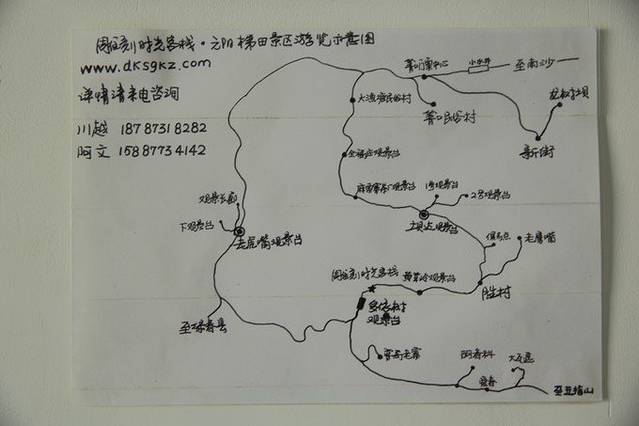 时光客栈·元阳梯田景区游览示意图
www.dksgkz.com
详情请来电咨询
川越 18787318282
阿文 15887734142
箐口寨中心
小水井
至南沙
大渔塘民俗村
箐口民俗村
新街
全福庄观景台
麻栗寨茶厂观景台
1号观景台
2号观景台
坝达观景台
观景长廊
下观景台
老虎嘴观景台
俱乐点
老鹰嘴
胜村
时光客栈
黄草岭观景台
多依树
观景台
至绿春县
普高老寨
阿者科
爱春
大瓦遮
至五指山